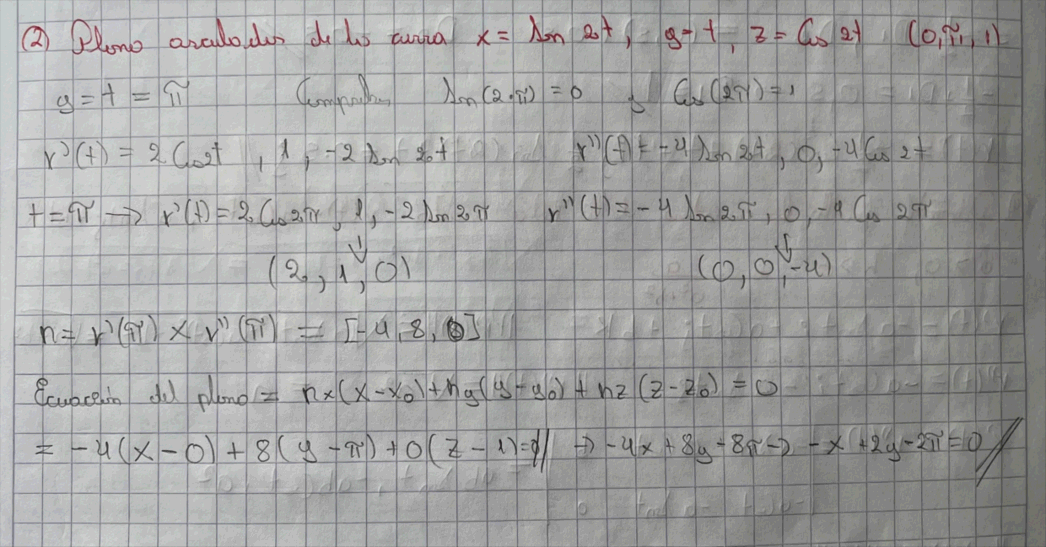 ② Plano osculador de la curva x = sen 2t, y = t, z = Cos 2t (0, π, 1)
y = t = π Comprobar sen(2·π) = 0 y Cos(2π) = 1
r'(t) = 2 Cos2t, 1, -2 sen 2t r''(t) = -4 sen 2t, 0, -4 Cos 2t
t = π → r'(t) = 2 Cos 2π, 1, -2 sen 2π r''(t) = -4 sen 2π, 0, -4 Cos 2π
(2, 1, 0) (0, 0, -4)
n = r'(π) × r''(π) = [-4, 8, 0]
Ecuación del plano = nx(x-x0) + ny(y-y0) + nz(z-z0) = 0
= -4(x-0) + 8(y-π) + 0(z-1)=0// → -4x + 8y - 8π → -x + 2y - 2π = 0//